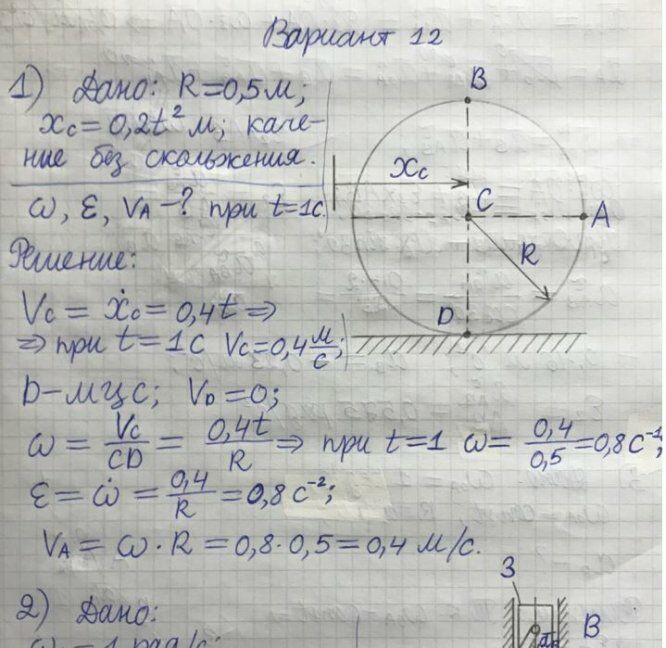 Вариант 12
1) Дано: R=0,5м;
xc=0,2t² м; каче-
ние без скольжения.
ω, ε, VA-? при t=1с.
Решение:
Vc = ẋc = 0,4t ⇒
⇒ при t=1с Vc=0,4 м/с;
D-мцс; VD=0;
ω = Vc/CD = 0,4t/R ⇒ при t=1 ω= 0,4/0,5 =0,8с⁻¹;
ε = ω̇ = 0,4/R = 0,8 с⁻²;
VA = ω·R = 0,8·0,5 = 0,4 м/с.
B
xc
C
A
R
D
2) Дано:
3
B